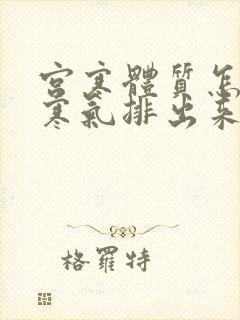 宮寒體質怎
寒氣排出來
格羅特